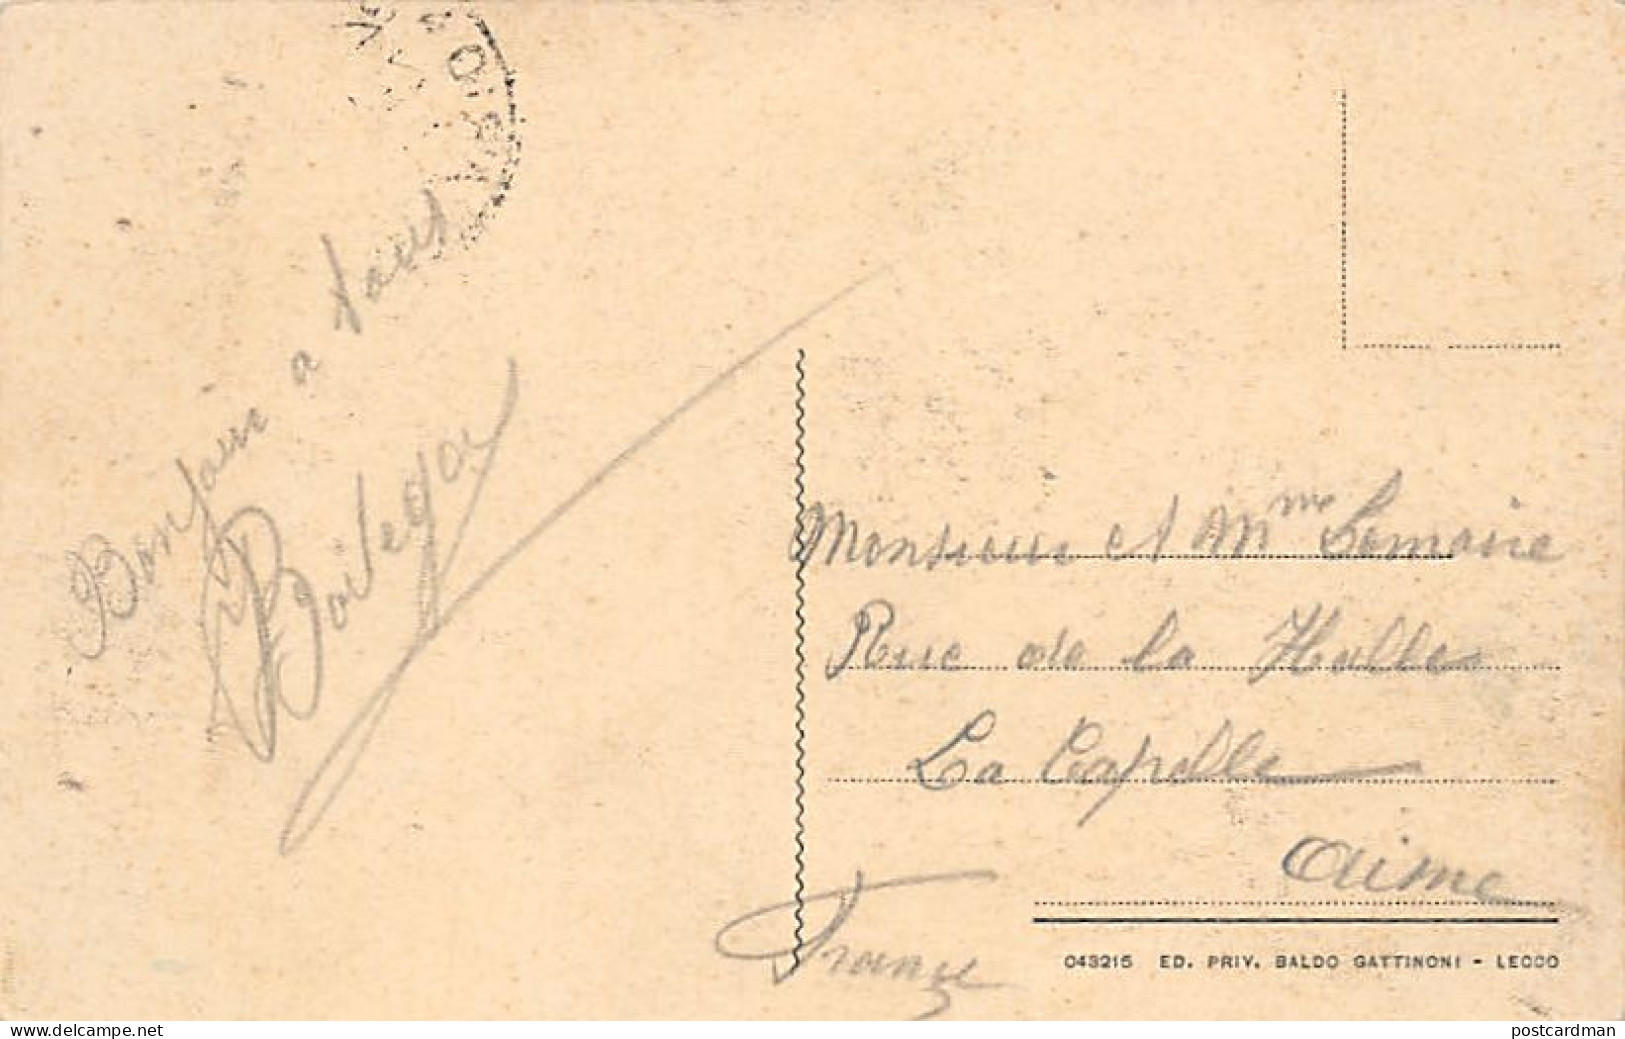 Bonjour a tous
Monsieur et Mme Lemaire
Rue de la Halle
La Capelle
Aisne
France
043215 ED. PRIV. BALDO GATTINONI - LECCO
Buy on delcampe.net
postcardman